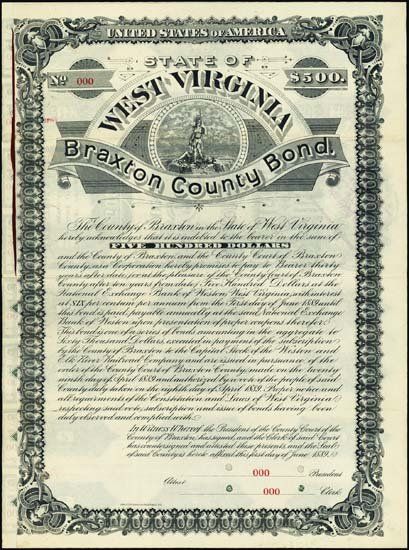 UNITED STATES OF AMERICA
STATE OF
No 000
$500.
WEST VIRGINIA
Braxton County Bond.
The County of Braxton in the State of West Virginia
hereby acknowledges that it is indebted to the bearer in the sum of
FIVE HUNDRED DOLLARS
and the County of Braxton, and the County Court of Braxton
County, as a Corporation hereby promises to pay to Bearer thirty
years after date, or at the pleasure of the County Court of Braxton
County after ten years from date, Five Hundred Dollars at the
National Exchange Bank of Weston West Virginia, with interest
at SIX per centum per annum from the First day of June 1889 until
this bond is paid, payable annually at the said National Exchange
Bank of Weston upon presentation of proper coupons therefor.
This bond is one of a series of bonds amounting in the aggregate to
Sixty Thousand Dollars, executed in payment of the subscription
by the County of Braxton to the Capital Stock of the Weston and
Elk River Railroad Company and are issued in pursuance of the
vote of the County Court of Braxton County, made on the twenty
ninth day of April 1889 and authorized by vote of the people of said
County duly taken on the eighth day of April 1889. Proper notice and
all requirements of the Constitution and Laws of West Virginia
respecting said vote, subscription and issue of bonds having been
duly observed and complied with.
In Witness Whereof the President of the County Court of the
County of Braxton has signed, and the Clerk of said Court
has countersigned and attested these presents, and the Seal
of said County is hereto affixed this first day of June 1889.
000 President
Attest
000 Clerk